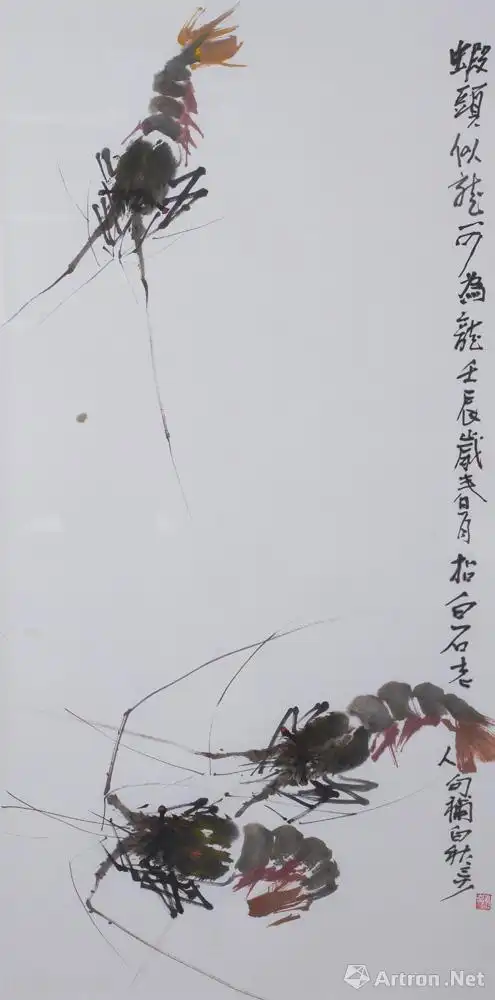 蝦頭似龍可為龍壬辰歲春月拈白石老
人句補白秋
Artron.Net